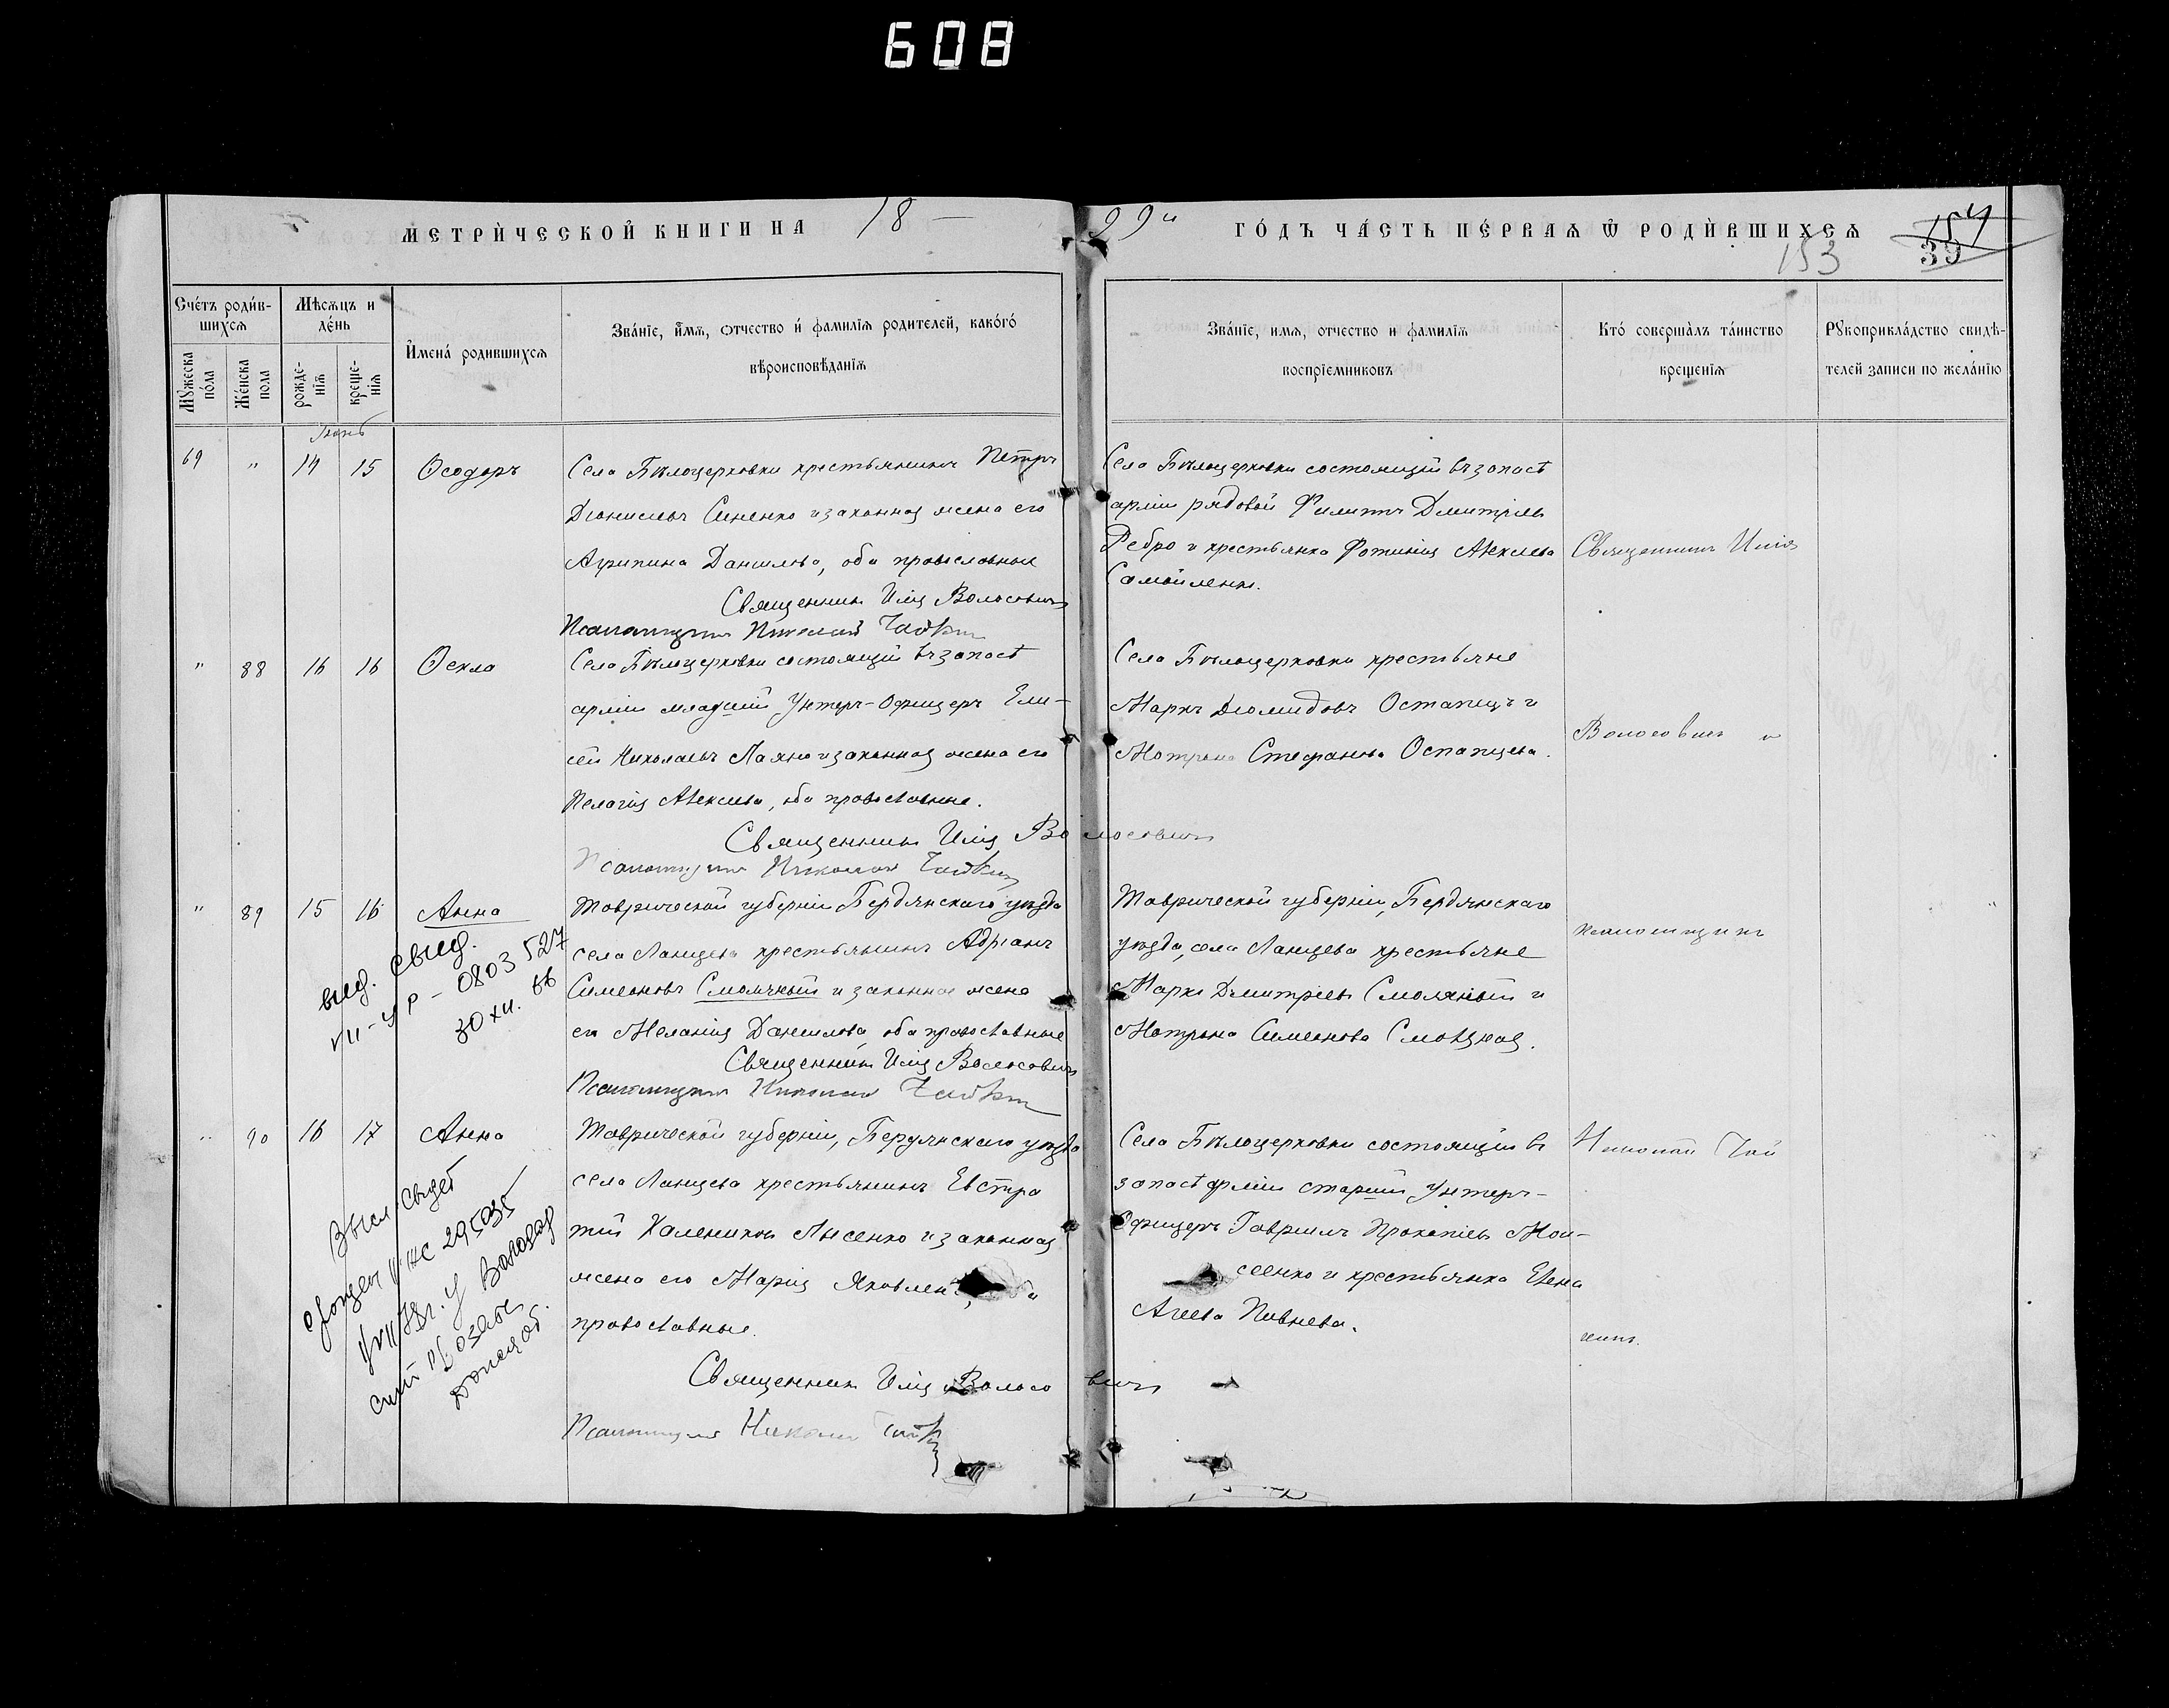 608
МЕТРИ́ЧЕСКОЙ КНИГИ НА 18 —
99 го ГО́ДЪ ЧА́СТЬ ПЕ́РВАѦ Ѡ҆ РОДИ́ВШИХСѦ
154
39
153
Сче́тъ роди́в-
шихсѧ
Мѣсѧцъ и
де́нь
Мꙋжеска
по́ла
Же́нска
пола
рожде-
нїѧ
креще-
нїѧ
И҆мена́ родившихсѧ
Зва́нїе, и҆́мѧ, отчество и҆ фамилїѧ родителей, како́гѡ
вѣроисповѣданїѧ
Зва́нїе, имѧ, отчество и фамилїѧ
воспрїемниковъ
Кто́ соверша́лъ та́инство
крещенїѧ
Рꙋкоприкла́дство свидѣ-
телей записи по жела́нїю
Іюнь
69 " 14 15 Ѳеодоръ
Села Бѣлоцерковки крестьянинъ Петръ
Діонисіевъ Синенко и законная жена его
Агрипина Данилова, оба православные
Священникъ Илія Волосовичъ
Псаломщикъ Николай
Села Бѣлоцерковки состоящій въ запасѣ
арміи рядовой Филиппъ Дмитріевъ
Ребро и крестьянка Фотинія Алексѣева
Самойленко.
Священникъ Илія
" 88 16 16 Ѳекла
Села Бѣлоцерковки состоящій въ запасѣ
арміи младшій Унтеръ-Офицеръ Ели-
сей Николаевъ и законная жена его
Пелагія Алексѣева, оба православные.
Священникъ Илія Волосовичъ
Псаломщикъ Николай
Села Бѣлоцерковки крестьяне
Маркъ Діомидовъ Остапецъ и
Мотрона Стефанова Остапцева.
Волосовичъ и
" 89 15 16 Анна
Таврической губерніи Бердянскаго уѣзда
села Ланцева крестьянинъ Адріанъ
Симеоновъ Смоляный и законная жена
его Меланія Данилова оба православные
Священникъ Илія Волосовичъ
Псаломщикъ Николай
Таврической губерніи, Бердянскаго
уѣзда, села Ланцева крестьяне
Марко Дмитріевъ Смоляный и
Мотрона Симеонова
псаломщикъ
выд. свид.
УР - 0803527
30 XII. 66
" 90 16 17 Анна
Таврической губерніи, Бердянскаго уѣзда
села Ланцева крестьянинъ Евстра
тій Калениковъ Лысенко и законная
жена его Марія
православные.
Священникъ Илія Волосовичъ
Псаломщикъ Николай
Села Бѣлоцерковки состоящій въ
запасѣ арміи старшій Унтеръ-
Офицеръ Гавріилъ Прокопіевъ Мои-
сеенко и крестьянка Елена
Агеева Пивнева.
Николай Чай